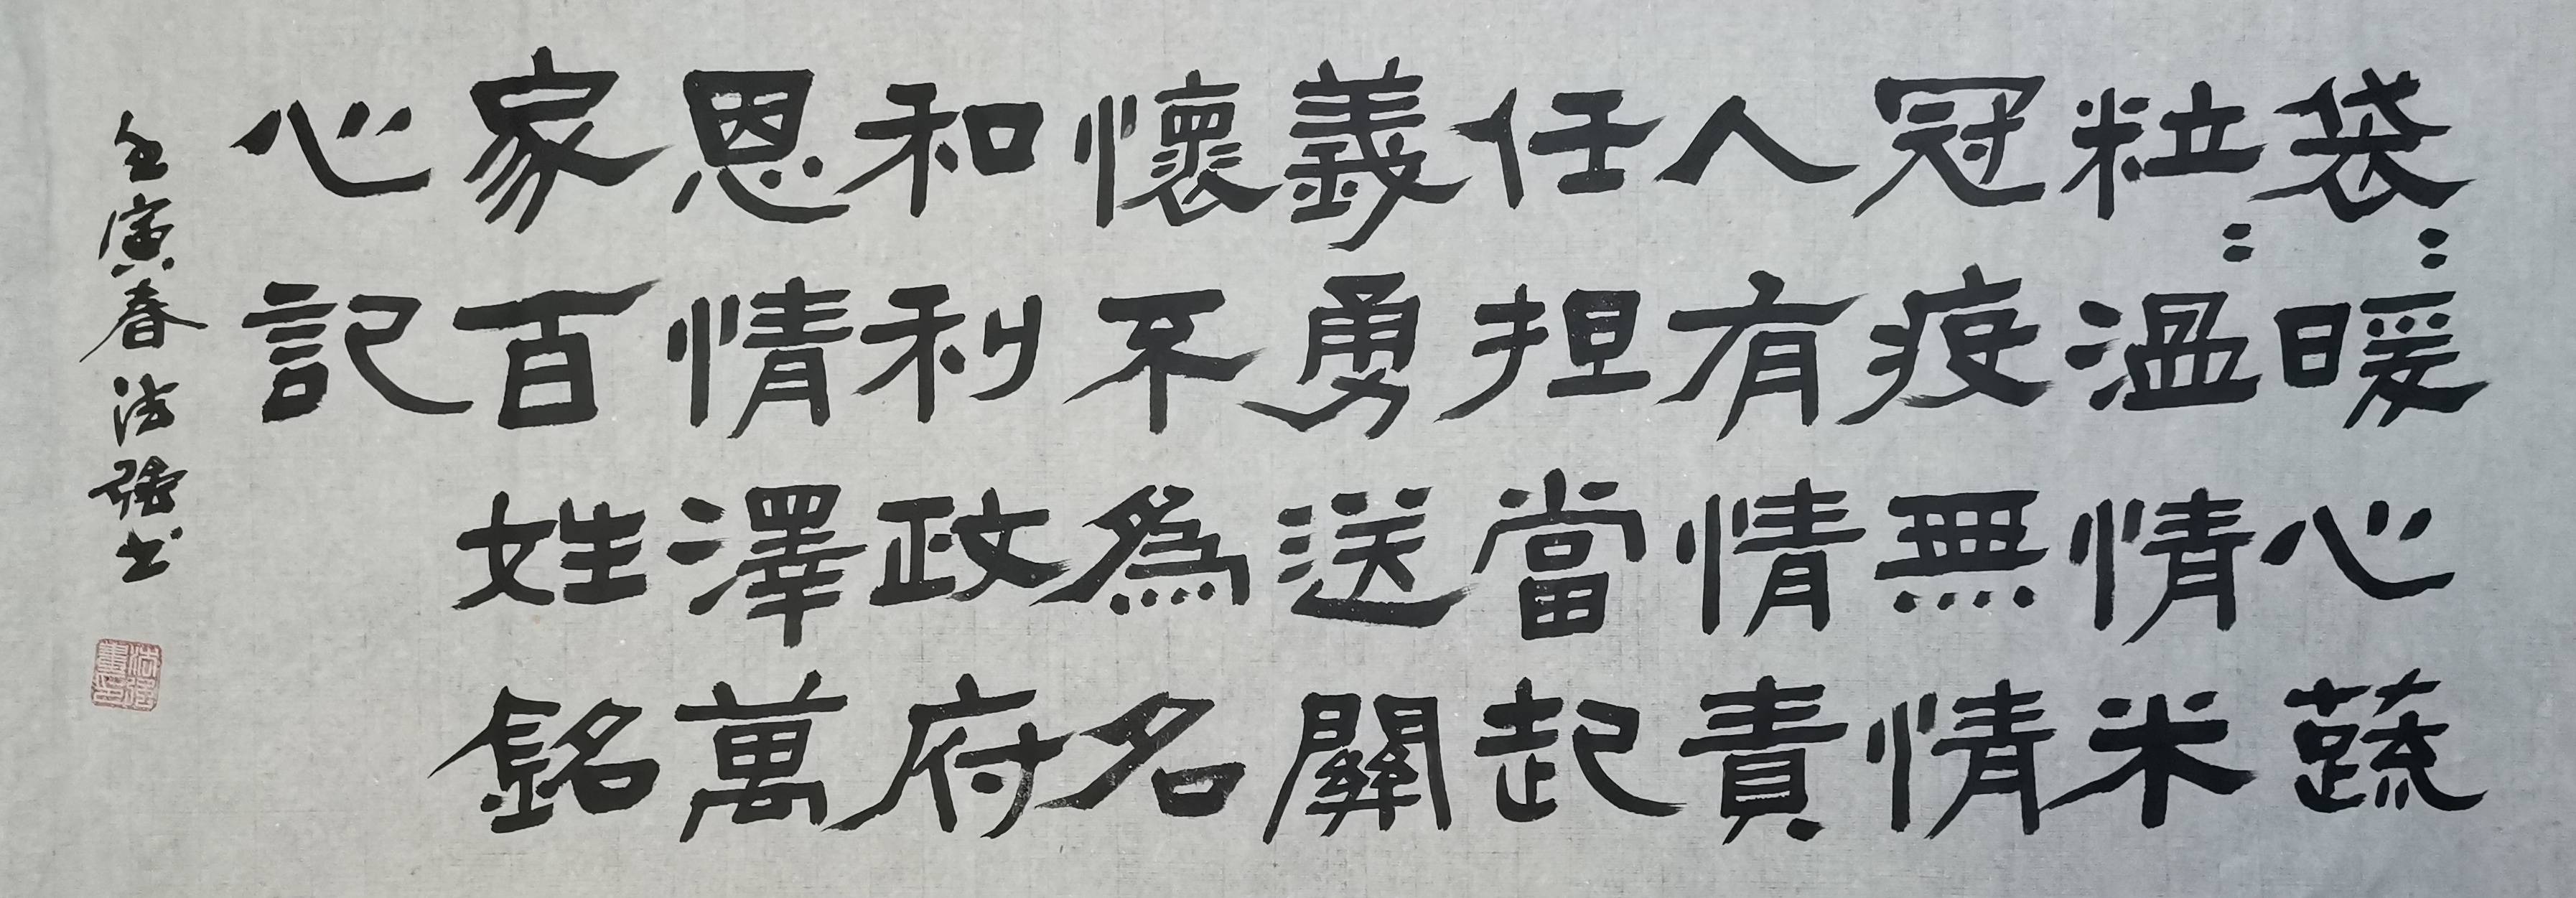 袋:暖心蔬
粒:溫情米
冠疫無情
人有情責
任担當起
義勇送關
懷不為名
和利政府
恩情澤萬
家百姓銘
心記
壬寅春浩强书